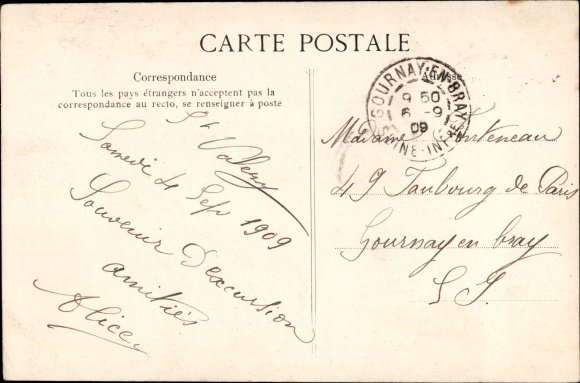 CARTE POSTALE
Correspondance
Tous les pays étrangers n'acceptent pas la
correspondance au recto, se renseigner à poste
Adresse
GOURNAY-EN-BRAY
9 50
6 -9
09
SEINE-INFRE
St Valery
Samedi 4 Sep 1909
Souvenir d'excursion
amitiés
Alice
Madame Fonteneau
49 Faubourg de Paris
Gournay en bray
S I.